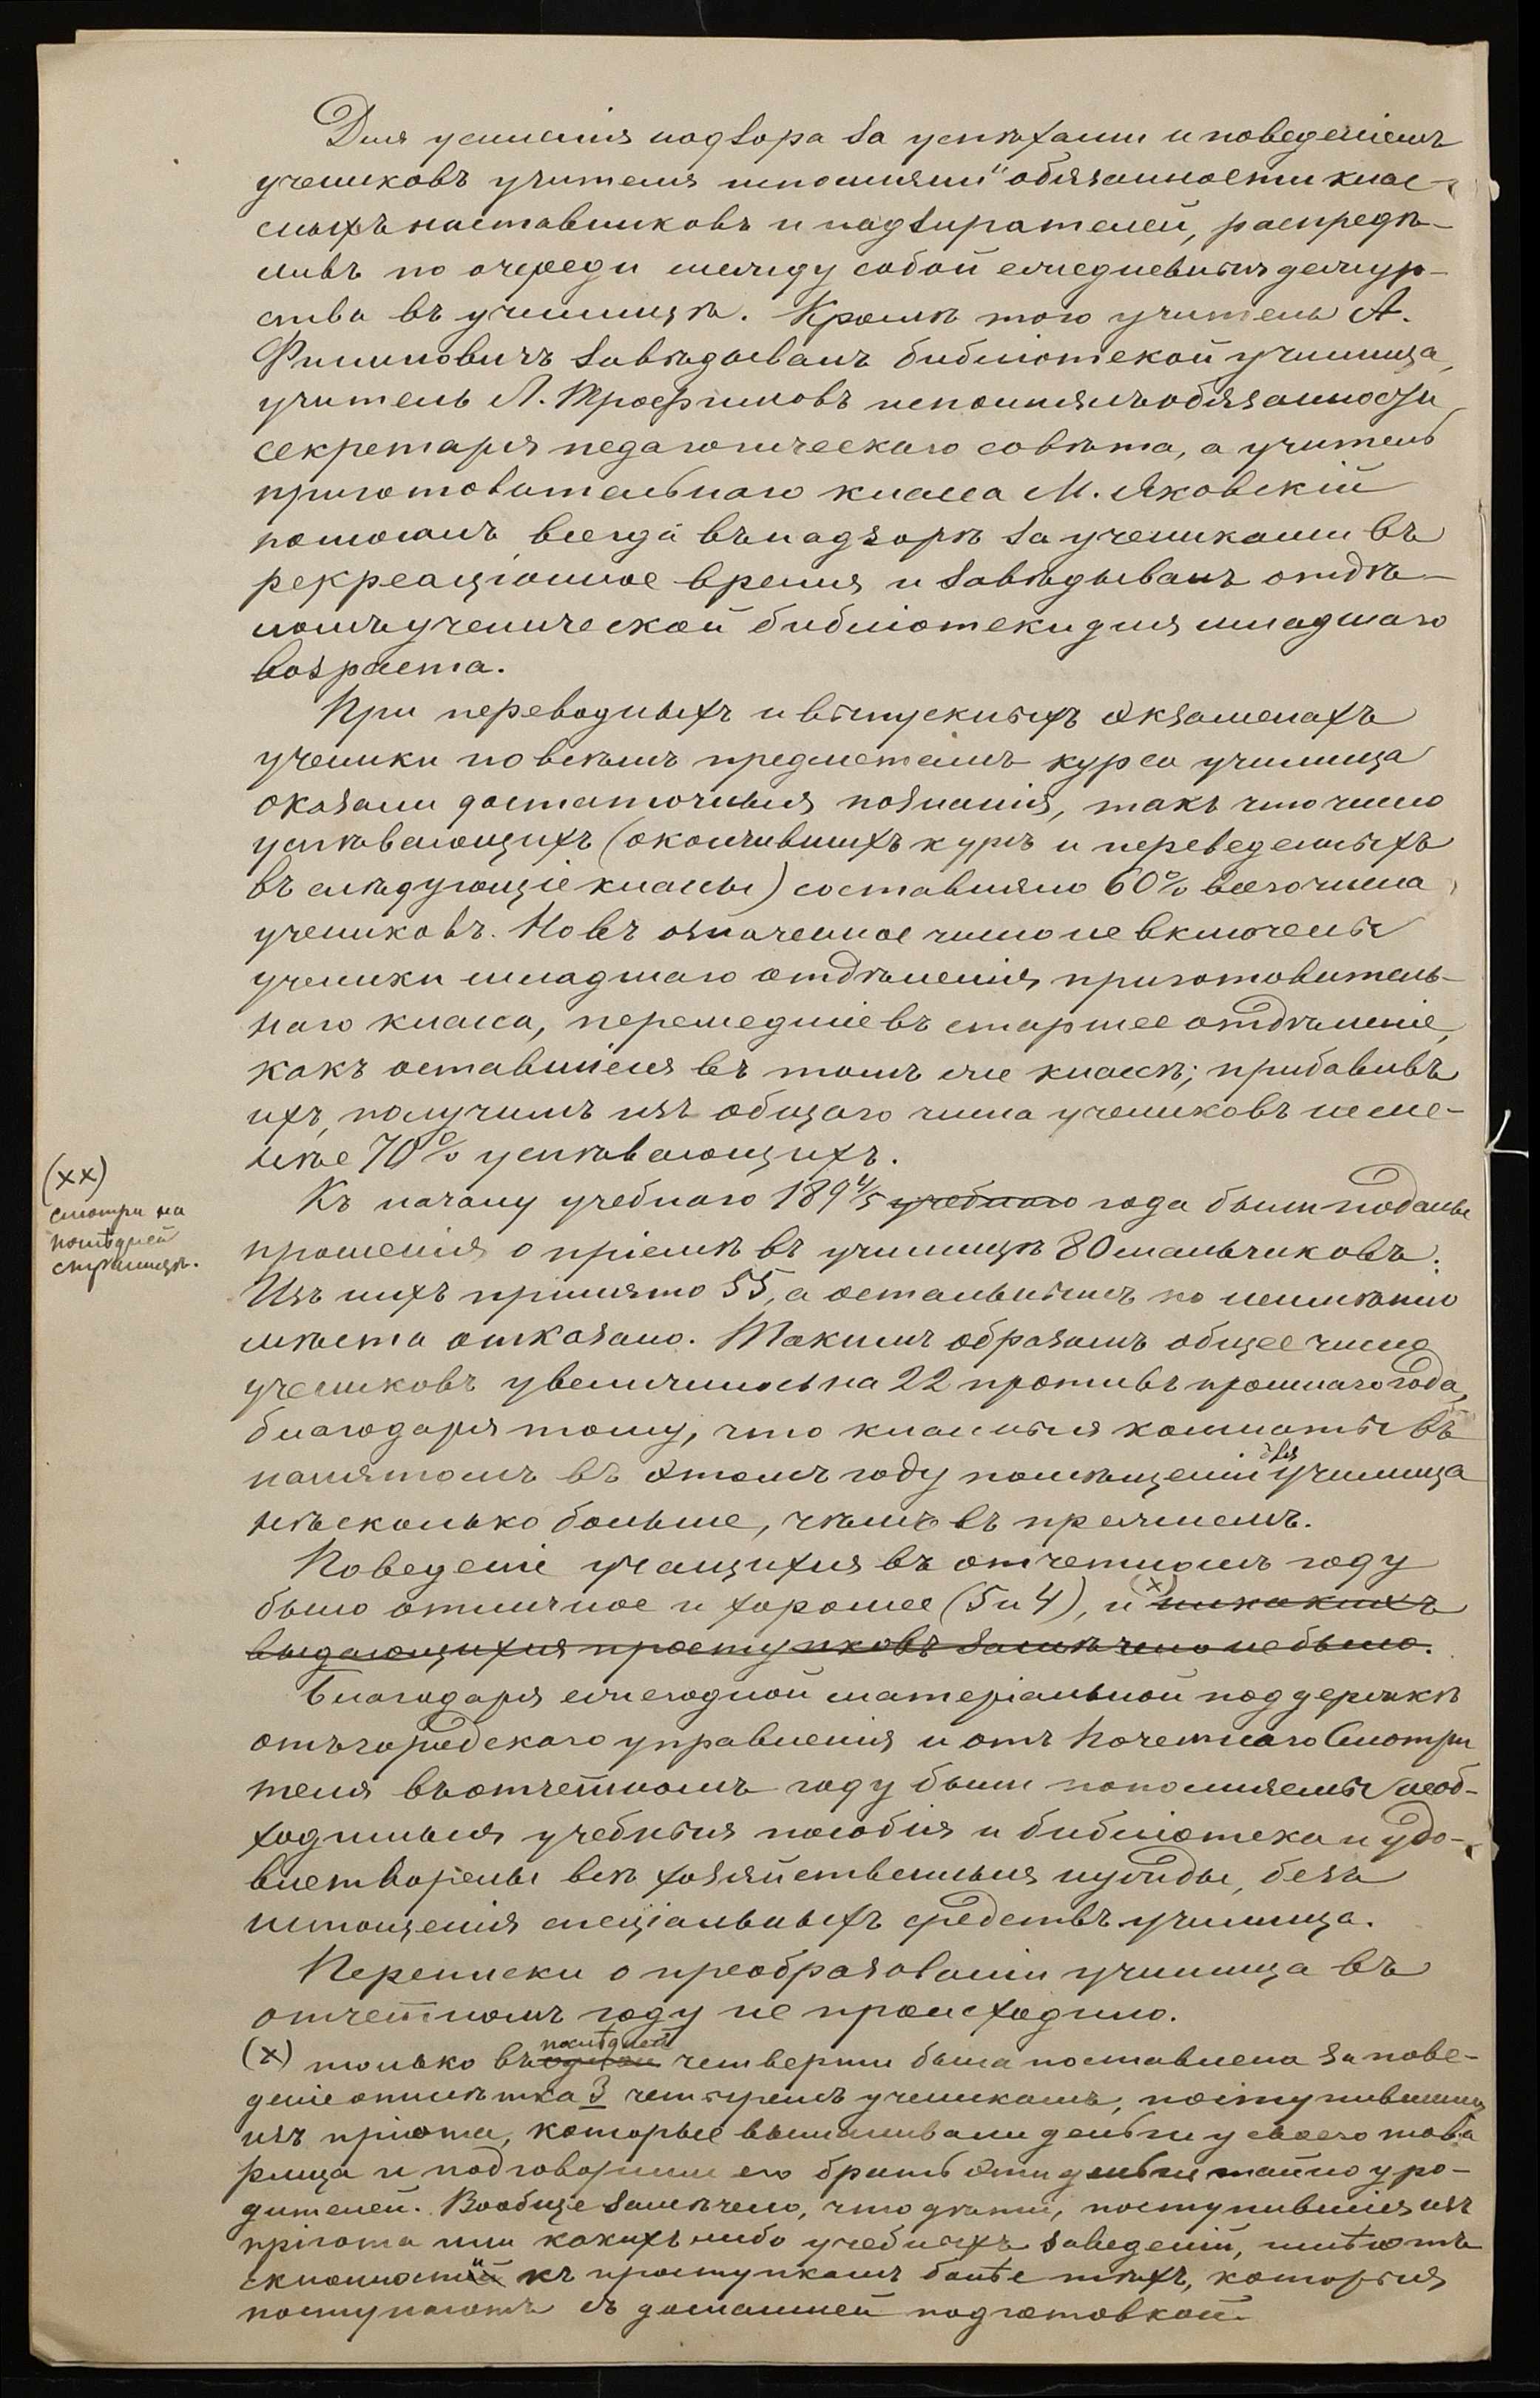 Для усиленія надзора за успѣхами и поведеніемъ
учениковъ учителя исполняли обязанности клас-
сныхъ наставниковъ и надзирателей, распредѣ-
ливъ по очереди между собой ежедневныя дежур-
ства въ училищѣ. Кромѣ того учитель А.
Филиповичъ завѣдывалъ библіотекой училища,
учитель Л. Трофимовъ исполнялъ обязанности
секретаря педагогическаго совѣта, а учитель
приготовительнаго класса М. Яковскій
помогалъ всегда въ надзорѣ за учениками въ
рекреаціонное время и завѣдывалъ отдѣ-
ломъ ученической библіотеки для младшаго
возраста.
При переводныхъ и выпускныхъ экзаменахъ
ученики по всѣмъ предметамъ курса училища
оказали достаточныя познанія, такъ что число
успѣвающихъ (окончившихъ курсъ и переведенныхъ
въ слѣдующіе классы) составляло 60% всего числа
учениковъ. Но въ означенное число не включены
ученики младшаго отдѣленія приготовитель-
наго класса, перешедшіе въ старшее отдѣленіе,
какъ оставшіеся въ томъ же классѣ; прибавивъ
ихъ, получимъ изъ общаго числа учениковъ не ме-
нѣе 70% успѣвающихъ.
(xx)
смотри на
послѣдней
страницѣ.
Къ началу учебнаго 1894/5 учебнаго года были поданы
прошенія о пріемѣ въ училище 80 мальчиковъ.
Изъ нихъ принято 55, а остальнымъ по неимѣнію
мѣста отказано. Такимъ образомъ общее число
учениковъ увеличилось на 22 противъ прошлаго года,
благодаря тому, что классныя комнаты въ
нанятомъ въ этомъ году помѣщеніи для училища
нѣсколько больше, чѣмъ въ прежнемъ.
Поведеніе учащихся въ отчетномъ году
было отличное и хорошее (5 и 4), и (x) никакихъ
выдающихся проступковъ замѣчено не было.
Благодаря ежегодной матеріальной поддержкѣ
отъ городскаго управленія и отъ Почетнаго Смотри
теля въ отчетномъ году были пополняемы необ-
ходимыя учебныя пособія и библіотека и удо-
влетворены всѣ хозяйственныя нужды, безъ
истощенія спеціальныхъ средствъ училища.
Переписки о преобразованіи училища въ
отчетномъ году не происходило.
(x) только въ одной послѣдней четверти была поставлена за пове-
деніе отмѣтка 3 четыремъ ученикамъ, поступившимъ
изъ пріюта, которые выманивали деньги у своего това
рища и подговорили его брать эти деньги тайно у ро-
дителей. Вообще замѣчено, что дѣти, поступившія изъ
пріюта или какихъ либо учебныхъ заведеній, имѣютъ
склонности къ проступкамъ болѣе тѣхъ, которыя
поступаютъ съ домашней подготовкой.